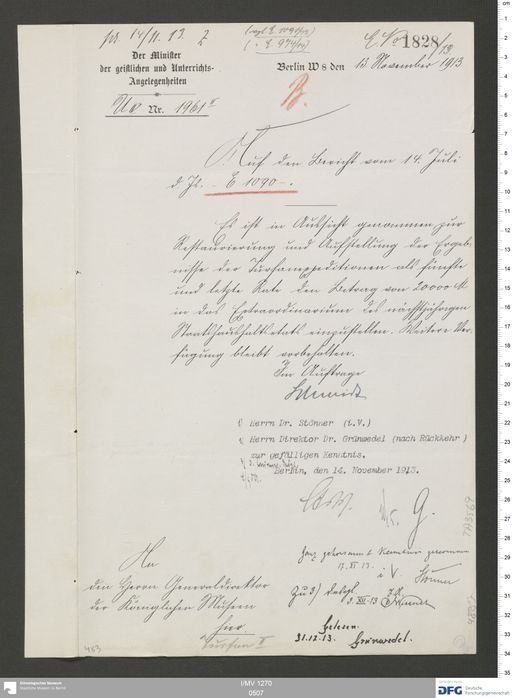 pr. 14/11. 13.
(vgl E. 1090/13)
(" E 974/13)
E. No 1828/13.
Der Minister
der geistlichen und Unterrichts-
Angelegenheiten
Berlin W 8 den 13. November 1913
UIV Nr. 1961 II
B.
Auf den Bericht vom 14. Juli
d. Js. - E 1090 -.
Es ist in Aussicht genommen zur
Restaurierung und Aufstellung der Ergeb-
nisse der Turfanexpeditionen als fünfte
und letzte Rate den Betrag von 20000 M
in das Extraordinarium des nächstjährigen
Staatshaushaltsetats einzustellen. Weitere Ver-
fügung bleibt vorbehalten.
Im Auftrage
Schmidt
1) Herrn Dr. Stönner (i.V.)
2) Herrn Direktor Dr. Grünwedel (nach Rückkehr)
zur gefälligen Kenntnis.
Berlin, den 14. November 1913.
G.
Kenntnis genommen
17. XI 13.
i. V. Stönner
An
den Herrn Generaldirektor
der Königlichen Museen
hier
Zu 3)
3. XII. 13
Gelesen
31.12.13. Grünwedel.
Turfan II
453
TA3569
4857
Ethnologisches Museum
Staatliche Museen zu Berlin
I/MV 1270
0507
DFG Deutsche
Forschungsgemeinschaft